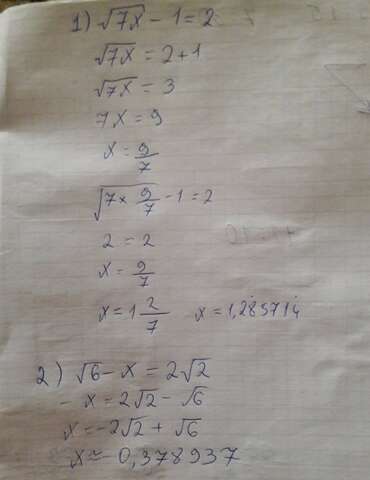 1) √7x − 1 = 2
√7x = 2+1
√7x = 3
7x = 9
x = 9/7
√7× 9/7 − 1 = 2
2 = 2
x = 9/7
x = 1 2/7 x = 1,285714
2) √6 − x = 2√2
− x = 2√2 − √6
x = −2√2 + √6
x ≈ − 0,378937